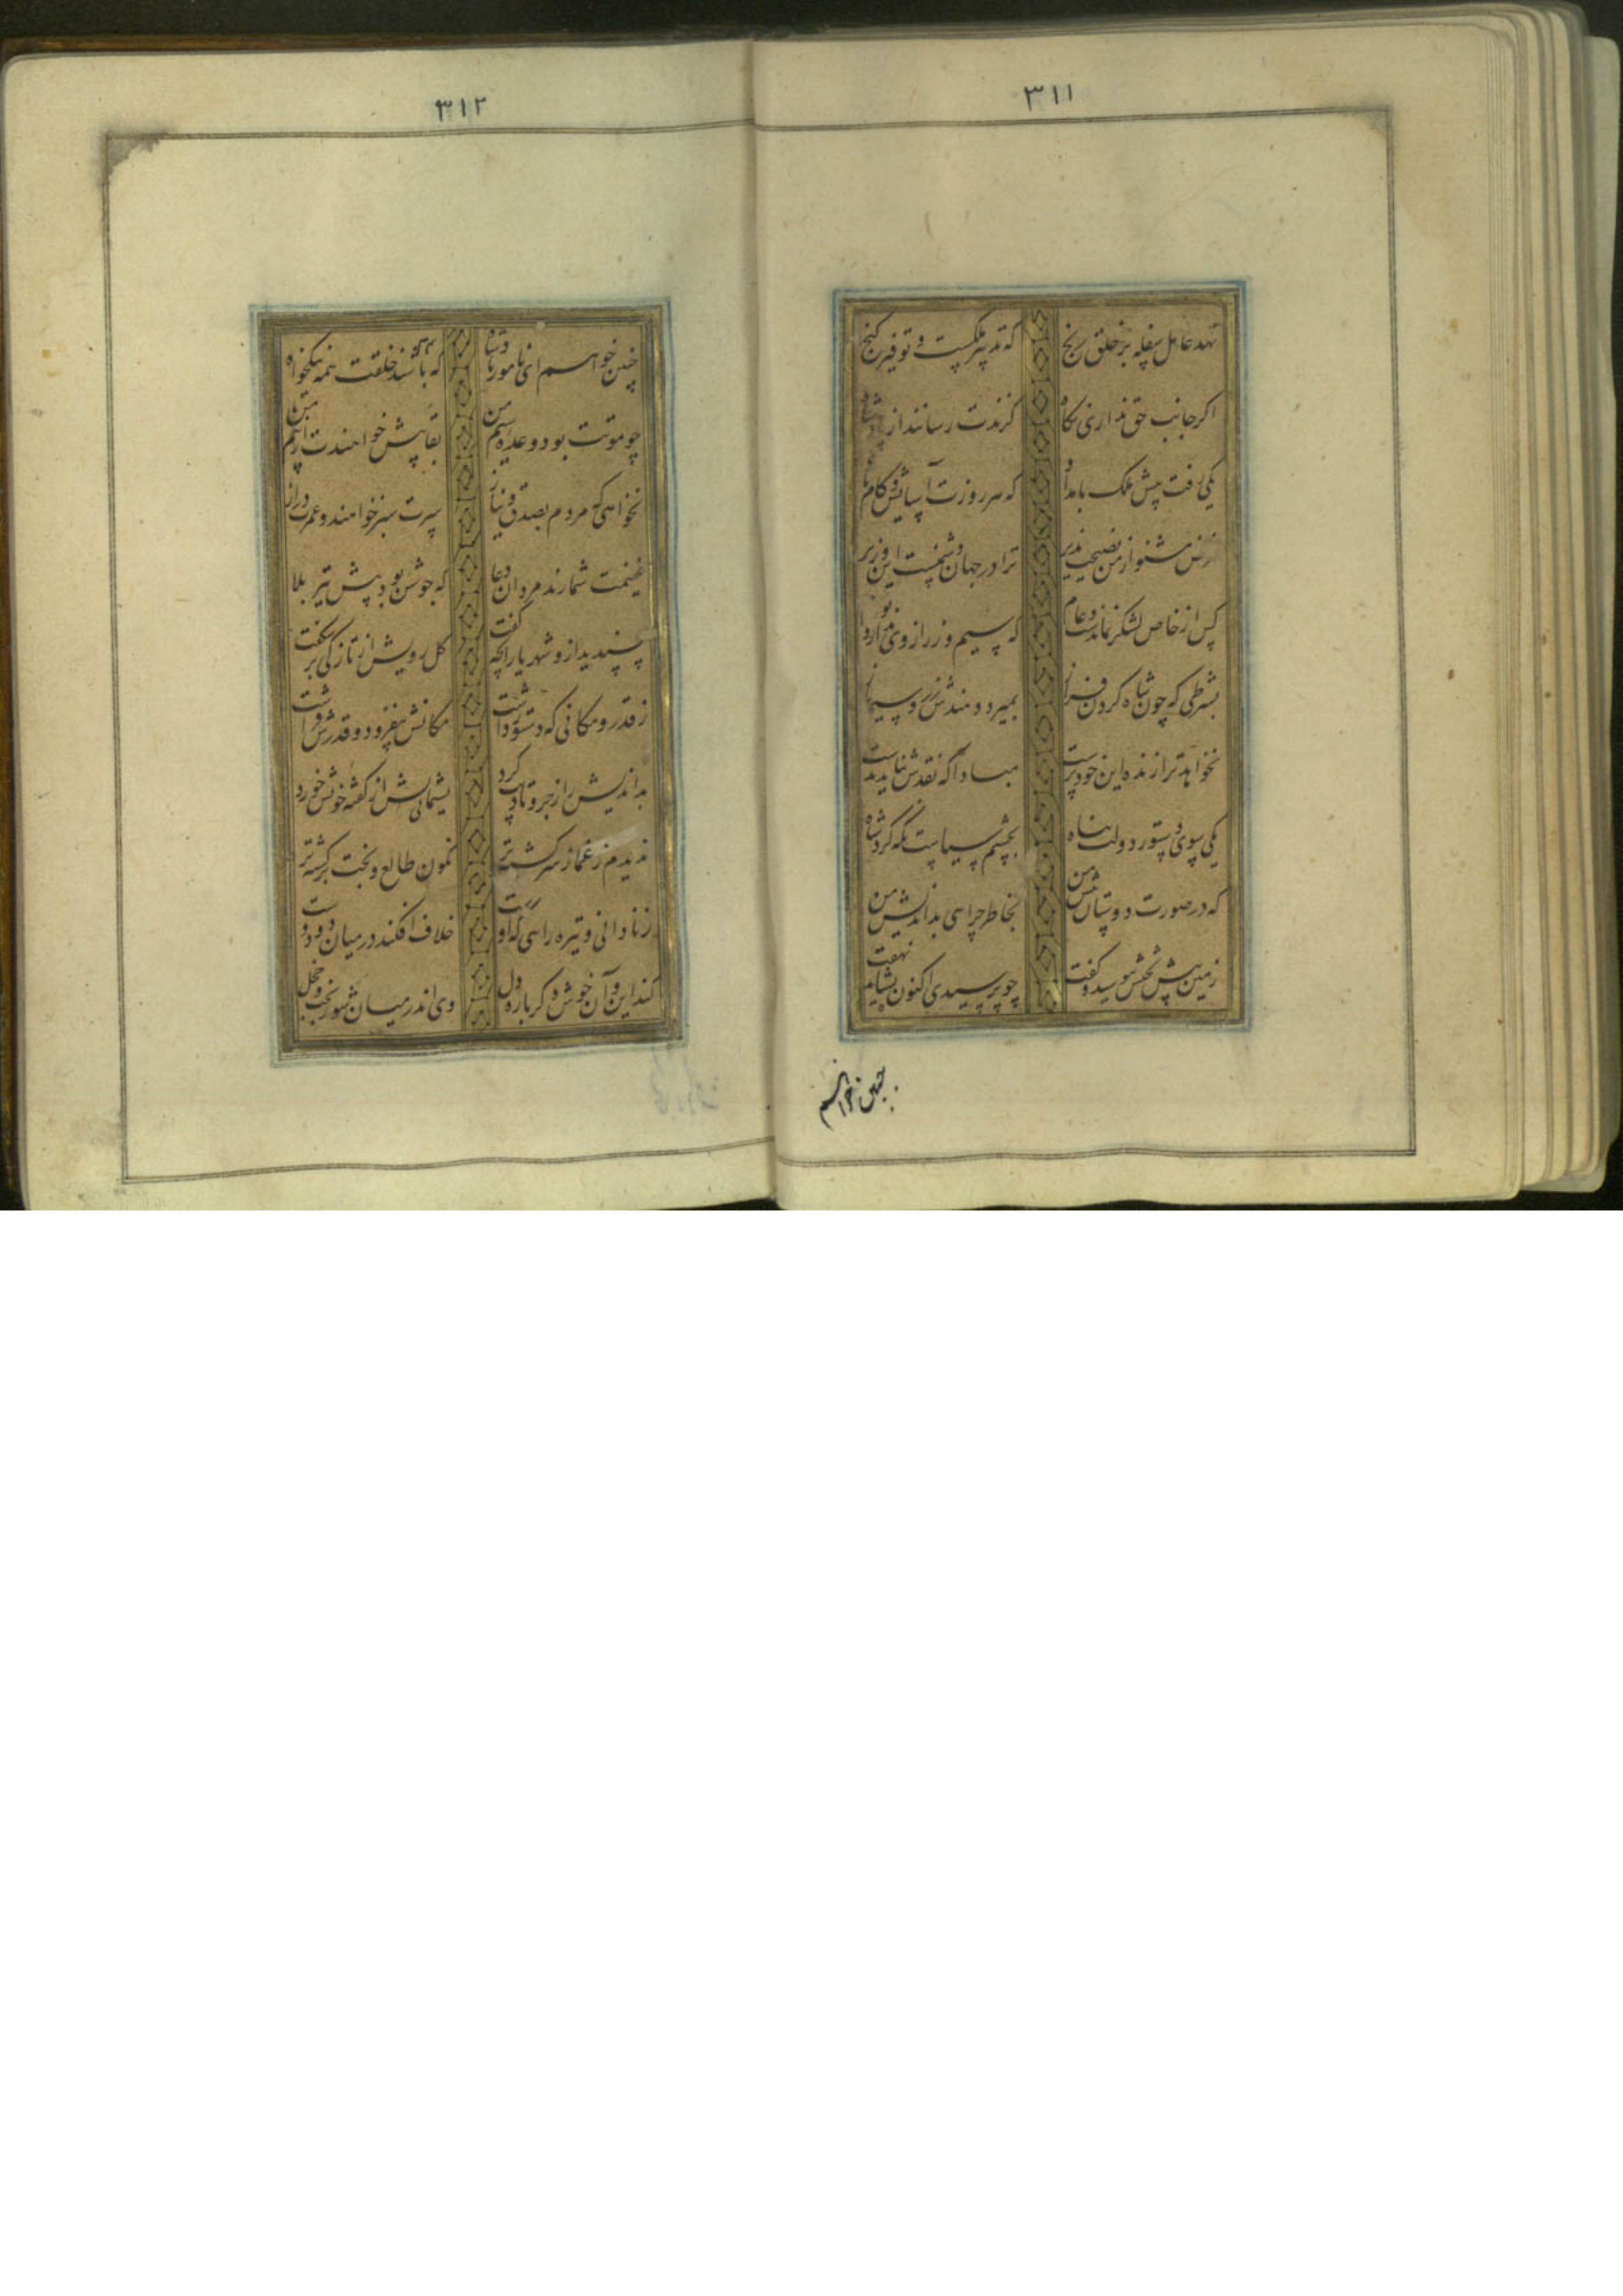 ۳۱۱
نهد عامل سفله بر خلق رنج که تدبیر ملکست و توفیر گنج
اگر جانب حق نداری نگاه گزندت رساند از پادشاه
یکی رفت پیش ملک بامداد که هر روزت آسایش و کام باد
غرض مشنو از من نصیحت پذیر ترا در جهان دشمنست این وزیر
کس از خاص لشکر نماندست و عام که سیم و زر از وی ندارد
بشرطی که چون شاه گردن فراز بمیرد دهندش زر و سیم باز
نخواهد ترا زنده این خودپرست مبادا که نقدش نیاید بدست
یکی سوی دستور دولت پناه بچشم سیاست نگه کرد شاه
که در صورت دوستان پیش من بخاطر چراهی بداندیش من
زمین پیش تختش ببوسید و گفت چو پرسیدی اکنون نشاید نهفت
چنین خواهم
۳۱۲
چنین خواهم ای نامور پادشاه که باشند خلقت همه نیکخواه
چو موتت بود وعده سیم من بقا بیش خواهندت از بیم من
نخواهی که مردم بصدق و نیاز سرت سبز خواهند و عمرت دراز
غنیمت شمارند مردان دعا که جوشن بود پیش تیر بلا
پسندید ازو شهریار آنچه گفت گل رویش از تازگی برشکفت
ز قدر و مکانی که دستور داشت مکانش بیفزود و قدرش فراشت
بداندیش را زجر و تادیب کرد پشیمانی از گفته خویش خورد
ندیدم ز غماز سرگشته تر نگون طالع و بخت برگشته تر
ز نادانی و تیره رایی که اوست خلاف افکند در میان دو دوست
کند این و آن خوش دگر باره دل وی اندر میان شوربخت و خجل